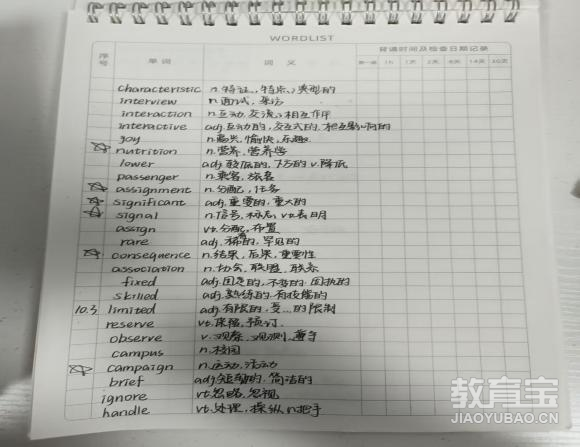 WORDLIST
序号 单词 词义 背诵时间及检查日期记录
第一遍 1h 1天 2天 6天 14天 30天
characteristic n.特征,特点,类型的
interview n.面试,采访
interaction n.互动,交流,相互作用
interactive adj.互动的,交互式的,相互影响的
joy n.高兴,愉快,乐趣
☆ nutrition n.营养,营养学
lower adj.较低的,下方的 v.降低
passenger n.乘客,旅客
☆ assignment n.分配,任务
☆ significant adj.重要的,重大的
☆ signal n.信号,标志,vt.表明
assign vt.分配,布置
rare adj.稀有的,罕见的
☆ consequence n.结果,后果,重要性
association n.协会,联盟,联系
fixed adj.固定的,不变的,固执的
skilled adj.熟练的,有技能的
10.3 limited adj.有限的,受...的限制
reserve vt.保留,预订
observe v.观察,观测,遵守
campus n.校园
☆ campaign n.运动,活动
brief adj.短暂的,简洁的
ignore vt.忽略,忽视
handle vt.处理,操纵 n.把手
教育宝
JIAOYUBAO.CN